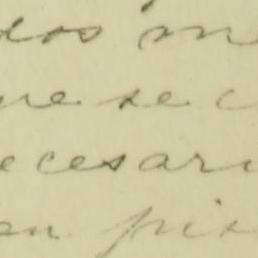 dos m
ue se c
ecesari
en pis